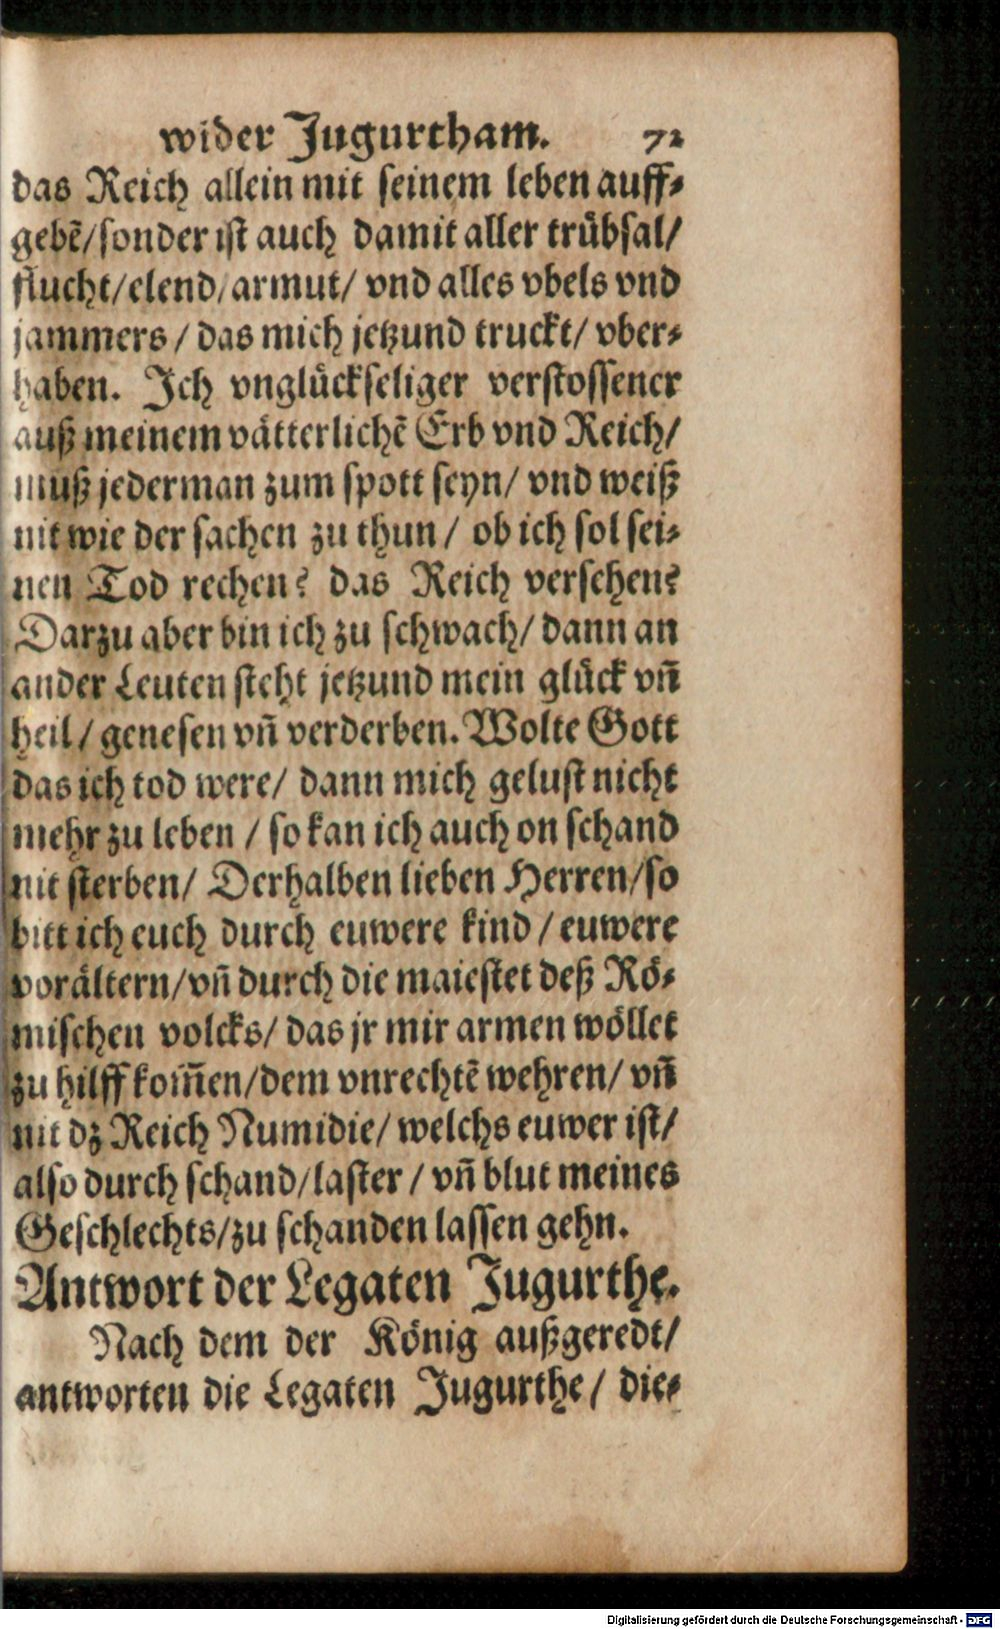 wider Jugurtham. 72
das Reich allein mit seinem leben auff⸗
gebẽ/sonder ist auch damit aller trübsal/
flucht/elend/armut/ vnd alles vbels vnd
jammers / das mich jetzund truckt/ vber⸗
haben. Ich vnglückseliger verstossener
auß meinem vätterlichẽ Erb vnd Reich/
muß jederman zum spott seyn/ vnd weiß
nit wie der sachen zu thun / ob ich sol sei⸗
nen Tod rechen? das Reich versehen?
Darzu aber bin ich zu schwach/ dann an
ander Leuten steht jetzund mein glück vñ
heil / genesen vñ verderben. Wolte Gott
das ich tod were/ dann mich gelust nicht
mehr zu leben / so kan ich auch on schand
nit sterben/ Derhalben lieben Herren/so
bitt ich euch durch euwere kind / euwere
vorältern/vñ durch die maiestet deß Rö⸗
mischen volcks/ das jr mir armen wöllet
zu hilff kom̃en/dem vnrechtẽ wehren/ vñ
nit dz Reich Numidie/ welchs euwer ist/
also durch schand/laster / vñ blut meines
Geschlechts/zu schanden lassen gehn.
Antwort der Legaten Jugurthe.
Nach dem der König außgeredt/
antworten die Legaten Jugurthe / die⸗
Digitalisierung gefördert durch die Deutsche Forschungsgemeinschaft - DFG